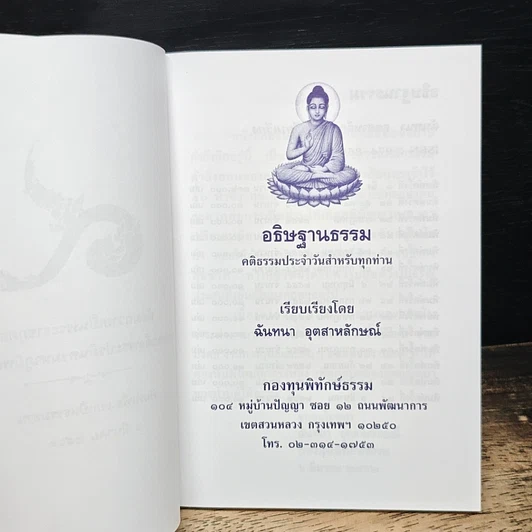 อธิษฐานธรรม
คติธรรมประจำวันสำหรับทุกท่าน
เรียบเรียงโดย
ฉันทนา อุตสาหลักษณ์
กองทุนพิทักษ์ธรรม
๑๐๔ หมู่บ้านปัญญา ซอย ๑๒ ถนนพัฒนาการ
เขตสวนหลวง กรุงเทพฯ ๑๐๒๕๐
โทร. ๐๒-๓๑๔-๑๗๕๓